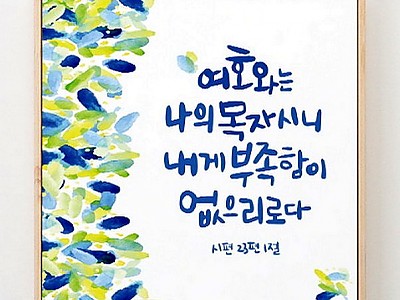 여호와는
나의 목자시니
내게 부족함이
없으리로다
시편 23편 1절